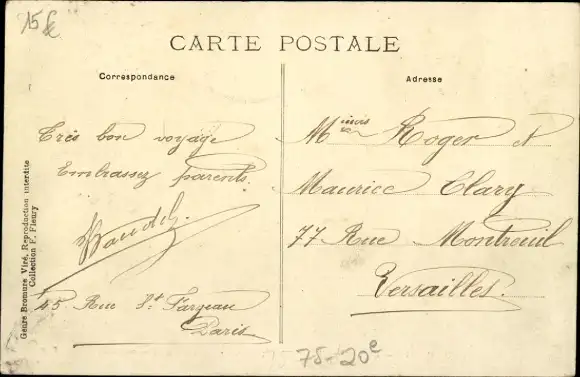 15€
CARTE POSTALE
Correspondance
Très bon voyage
Embrassez parents.
45 Rue St Fargeau
Paris
Adresse
Roger et
Maurice Clary
77 Rue Montreuil
Versailles.
Genre Bromure Viré, Reproduction interdite
Collection F. Fleury
75-20e